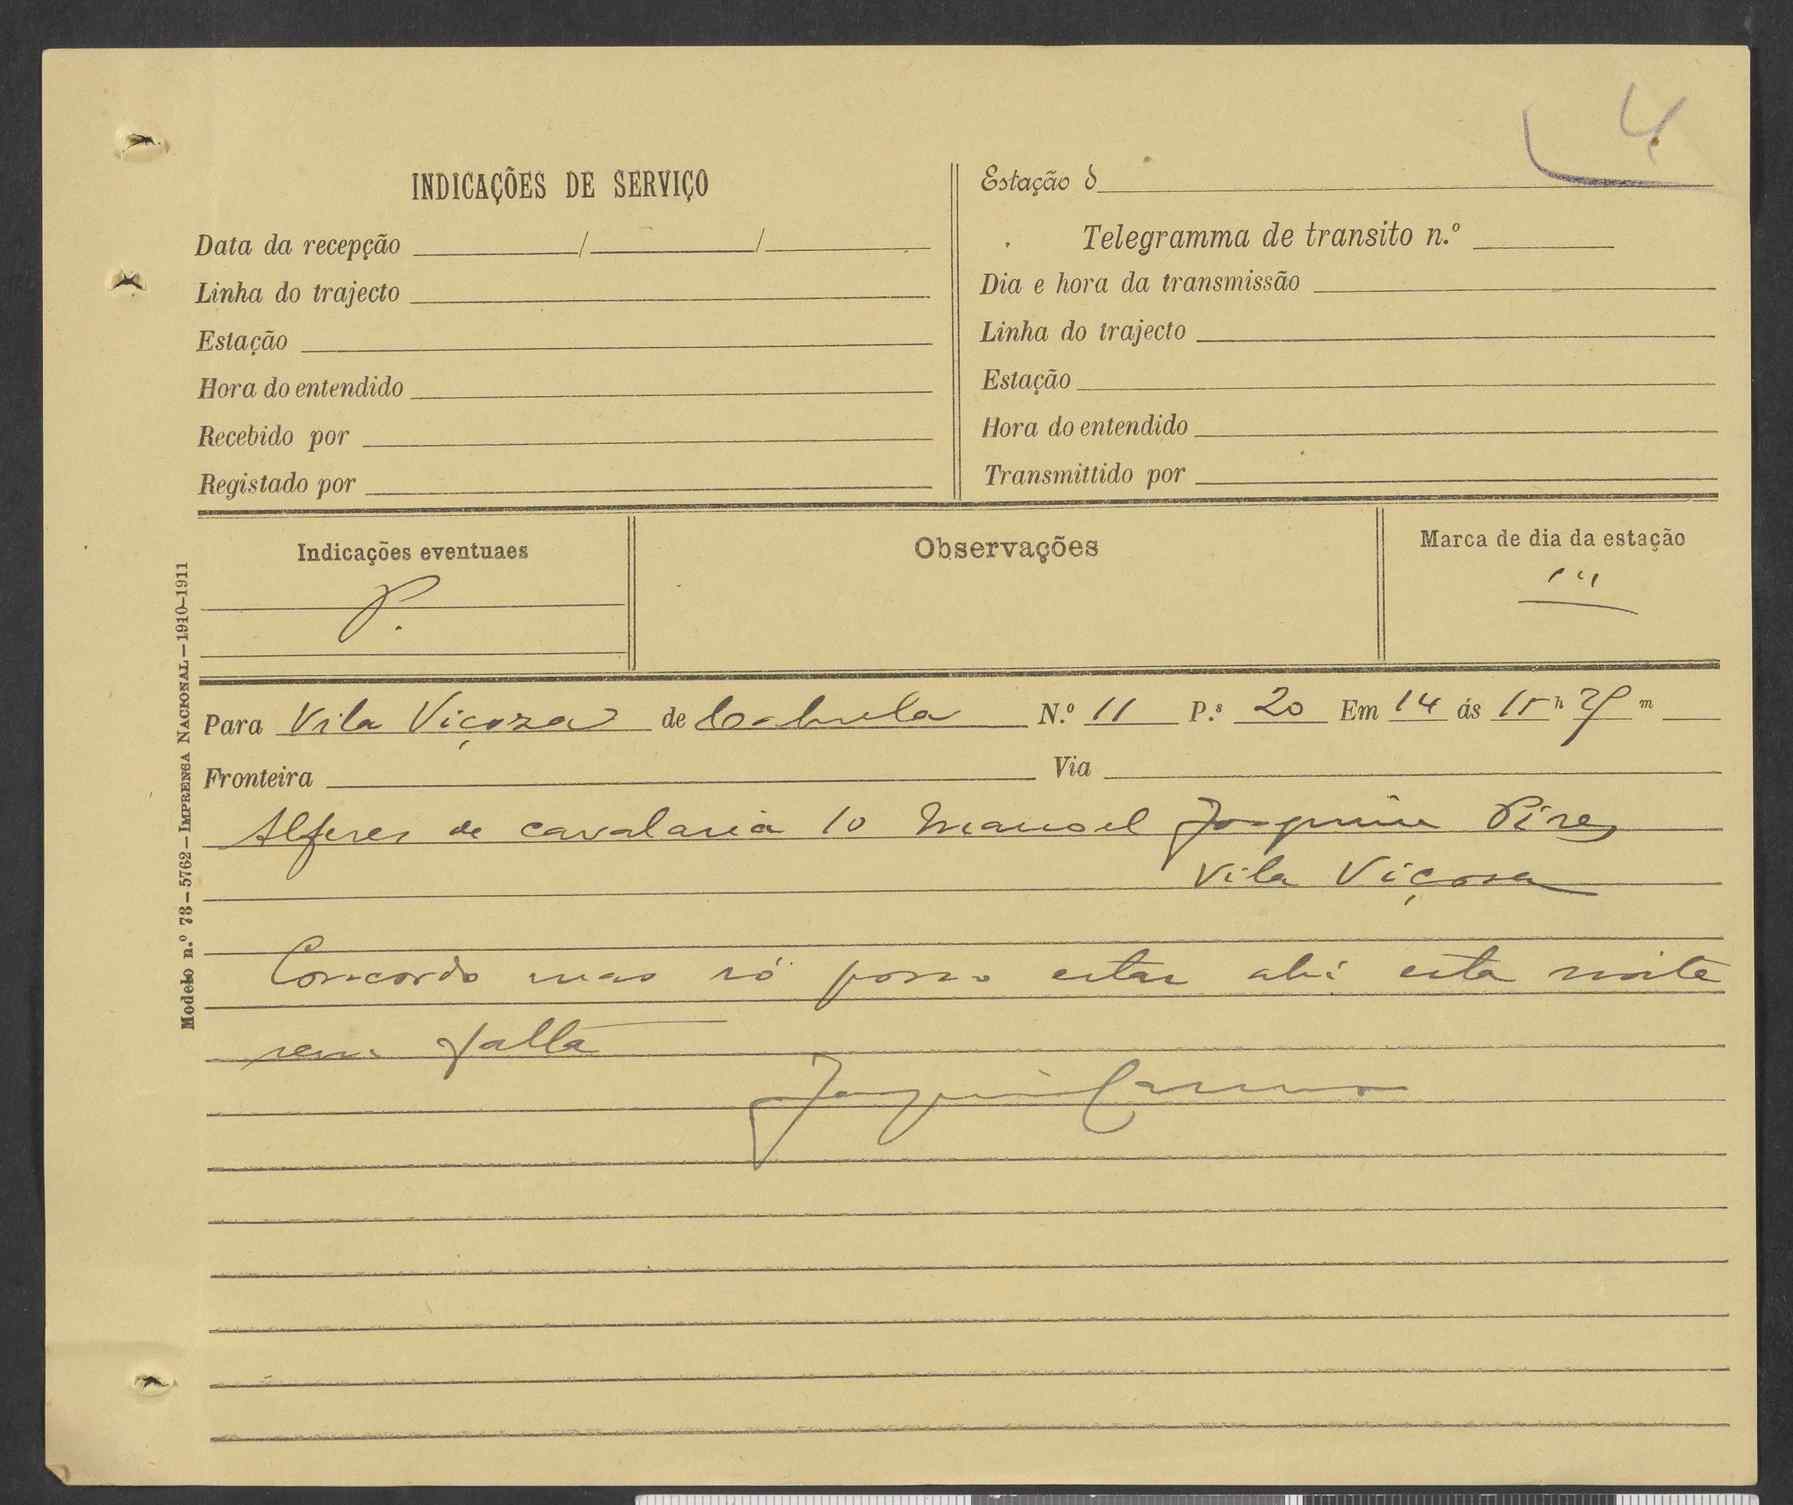 4
INDICAÇÕES DE SERVIÇO
Data da recepção / /
Linha do trajecto
Estação
Hora do entendido
Recebido por
Registado por
Estação d
Telegramma de transito n.º
Dia e hora da transmissão
Linha do trajecto
Estação
Hora do entendido
Transmittido por
Indicações eventuaes
P.
Observações
Marca de dia da estação
Modelo n.º 73 — 5762 — IMPRENSA NACIONAL — 1910-1911
Para Vila Viçoza de N.º 11 P.s 20 Em 14 ás 15 h m
Fronteira Via
Alferes de cavalaria 10 Manoel Joaquim Pires
Vila Viçosa
Concordo mas só posso estar ahi esta noite
sem falta
Joaquim